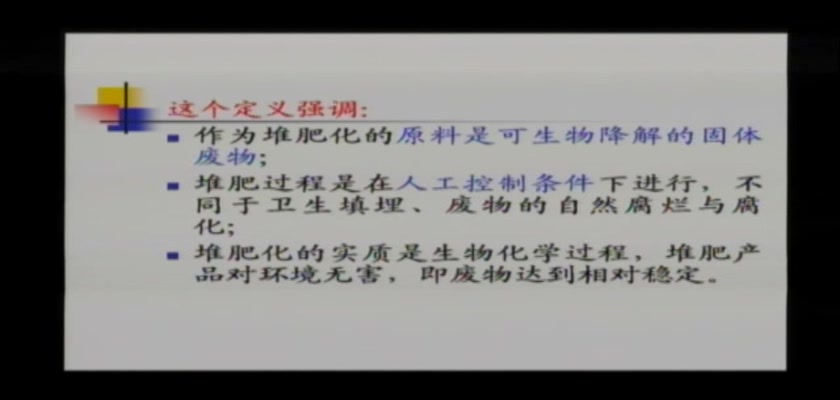 这个定义强调:
作为堆肥化的原料是可生物降解的固体
废物;
堆肥过程是在人工控制条件下进行，不
同于卫生填埋、废物的自然腐烂与腐
化;
堆肥化的实质是生物化学过程，堆肥产
品对环境无害，即废物达到相对稳定。